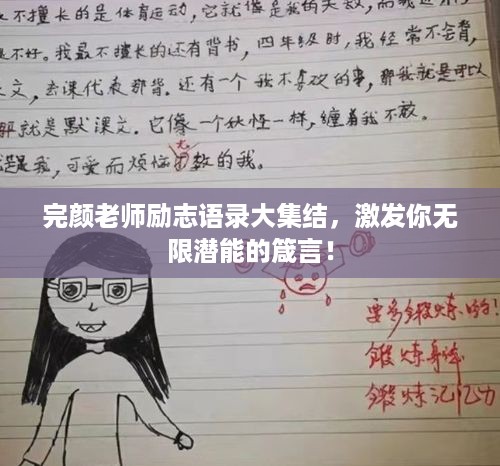 不擅长的是体育运动，它就像是我的天敌，而我
不好。我最不擅长的还有背书，四年级时，我经常不会背，
文，去课代表那背。还有一个我不喜欢的事，那我就是可以
就是默课文。它像一个妖怪一样，缠着我不放。
无
是我，可爱而烦恼数的我。
完颜老师励志语录大集结，激发你无
限潜能的箴言！
要多锻炼哟！
锻炼身体
锻炼记忆力